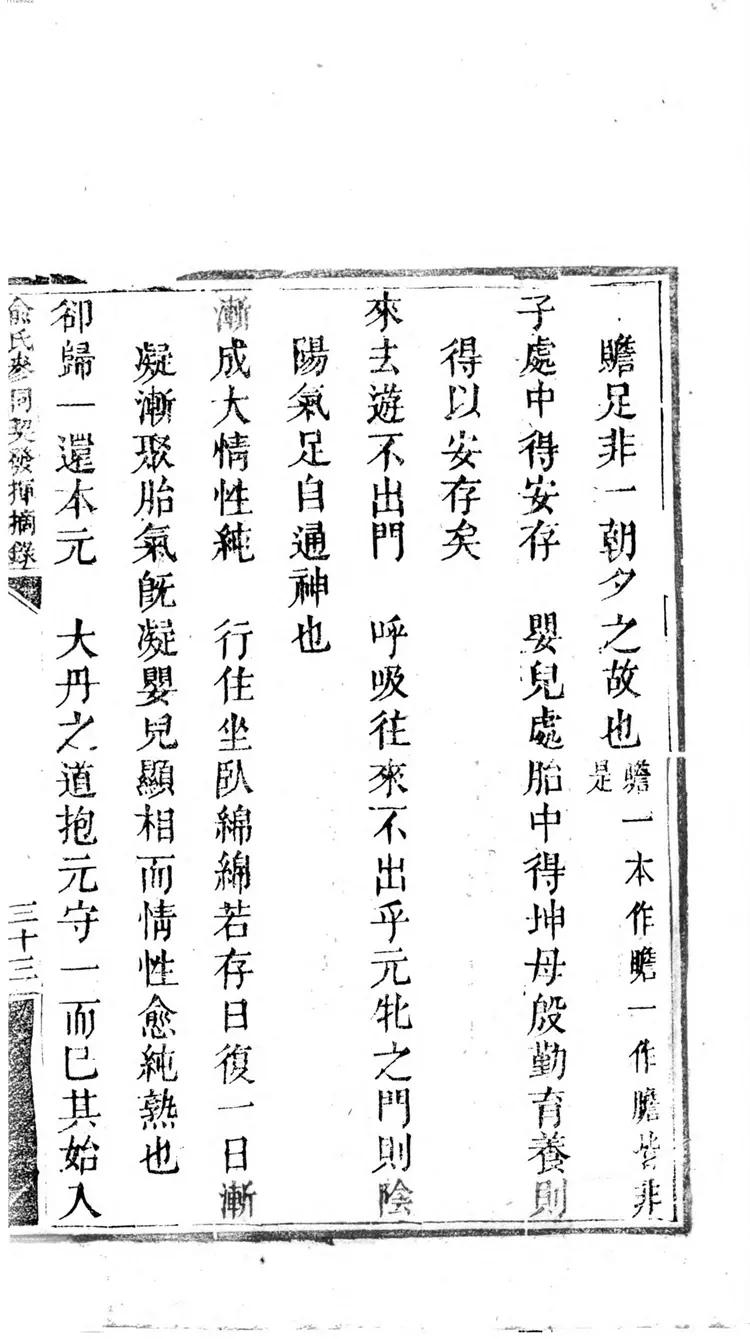 贍足非一朝夕之故也贍一本作瞻一作膽皆非是
子處中得安存　嬰兒處胎中得坤母殷勤育養則
得以安存矣
來去遊不出門　呼吸往來不出乎元牝之門則陰
陽氣足自通神也
漸成大情性純　行住坐臥綿綿若存日復一日漸
凝漸聚胎氣旣凝嬰兒顯相而情性愈純熟也
卻歸一還本元　大丹之道抱元守一而已其始入
俞氏參同契發揮摘錄
三十三